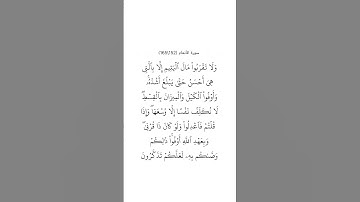 سورة الأنعام (152/165)
وَلَا تَقْرَبُوا۟ مَالَ ٱلْيَتِيمِ إِلَّا بِٱلَّتِى
هِىَ أَحْسَنُ حَتَّىٰ يَبْلُغَ أَشُدَّهُۥ
وَأَوْفُوا۟ ٱلْكَيْلَ وَٱلْمِيزَانَ بِٱلْقِسْطِ
لَا نُكَلِّفُ نَفْسًا إِلَّا وُسْعَهَا وَإِذَا
قُلْتُمْ فَٱعْدِلُوا۟ وَلَوْ كَانَ ذَا قُرْبَىٰ
وَبِعَهْدِ ٱللَّهِ أَوْفُوا۟ ذَٰلِكُمْ
وَصَّىٰكُم بِهِۦ لَعَلَّكُمْ تَذَكَّرُونَ